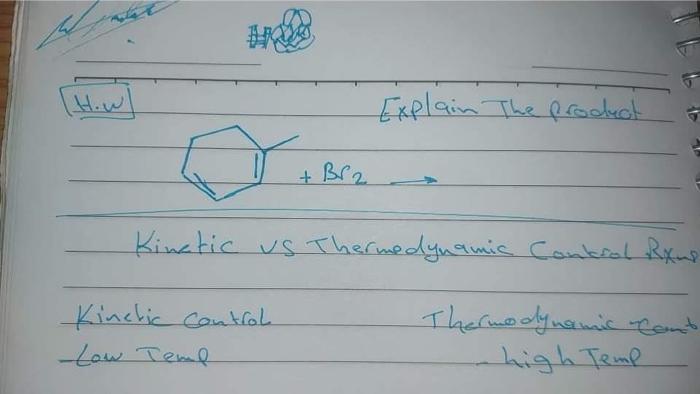 H.W
Explain The product
+ Br2
Kinetic vs Thermodynamic Control Rxns
Kinetic control
Thermodynamic Cont
- Low Temp
- high Temp